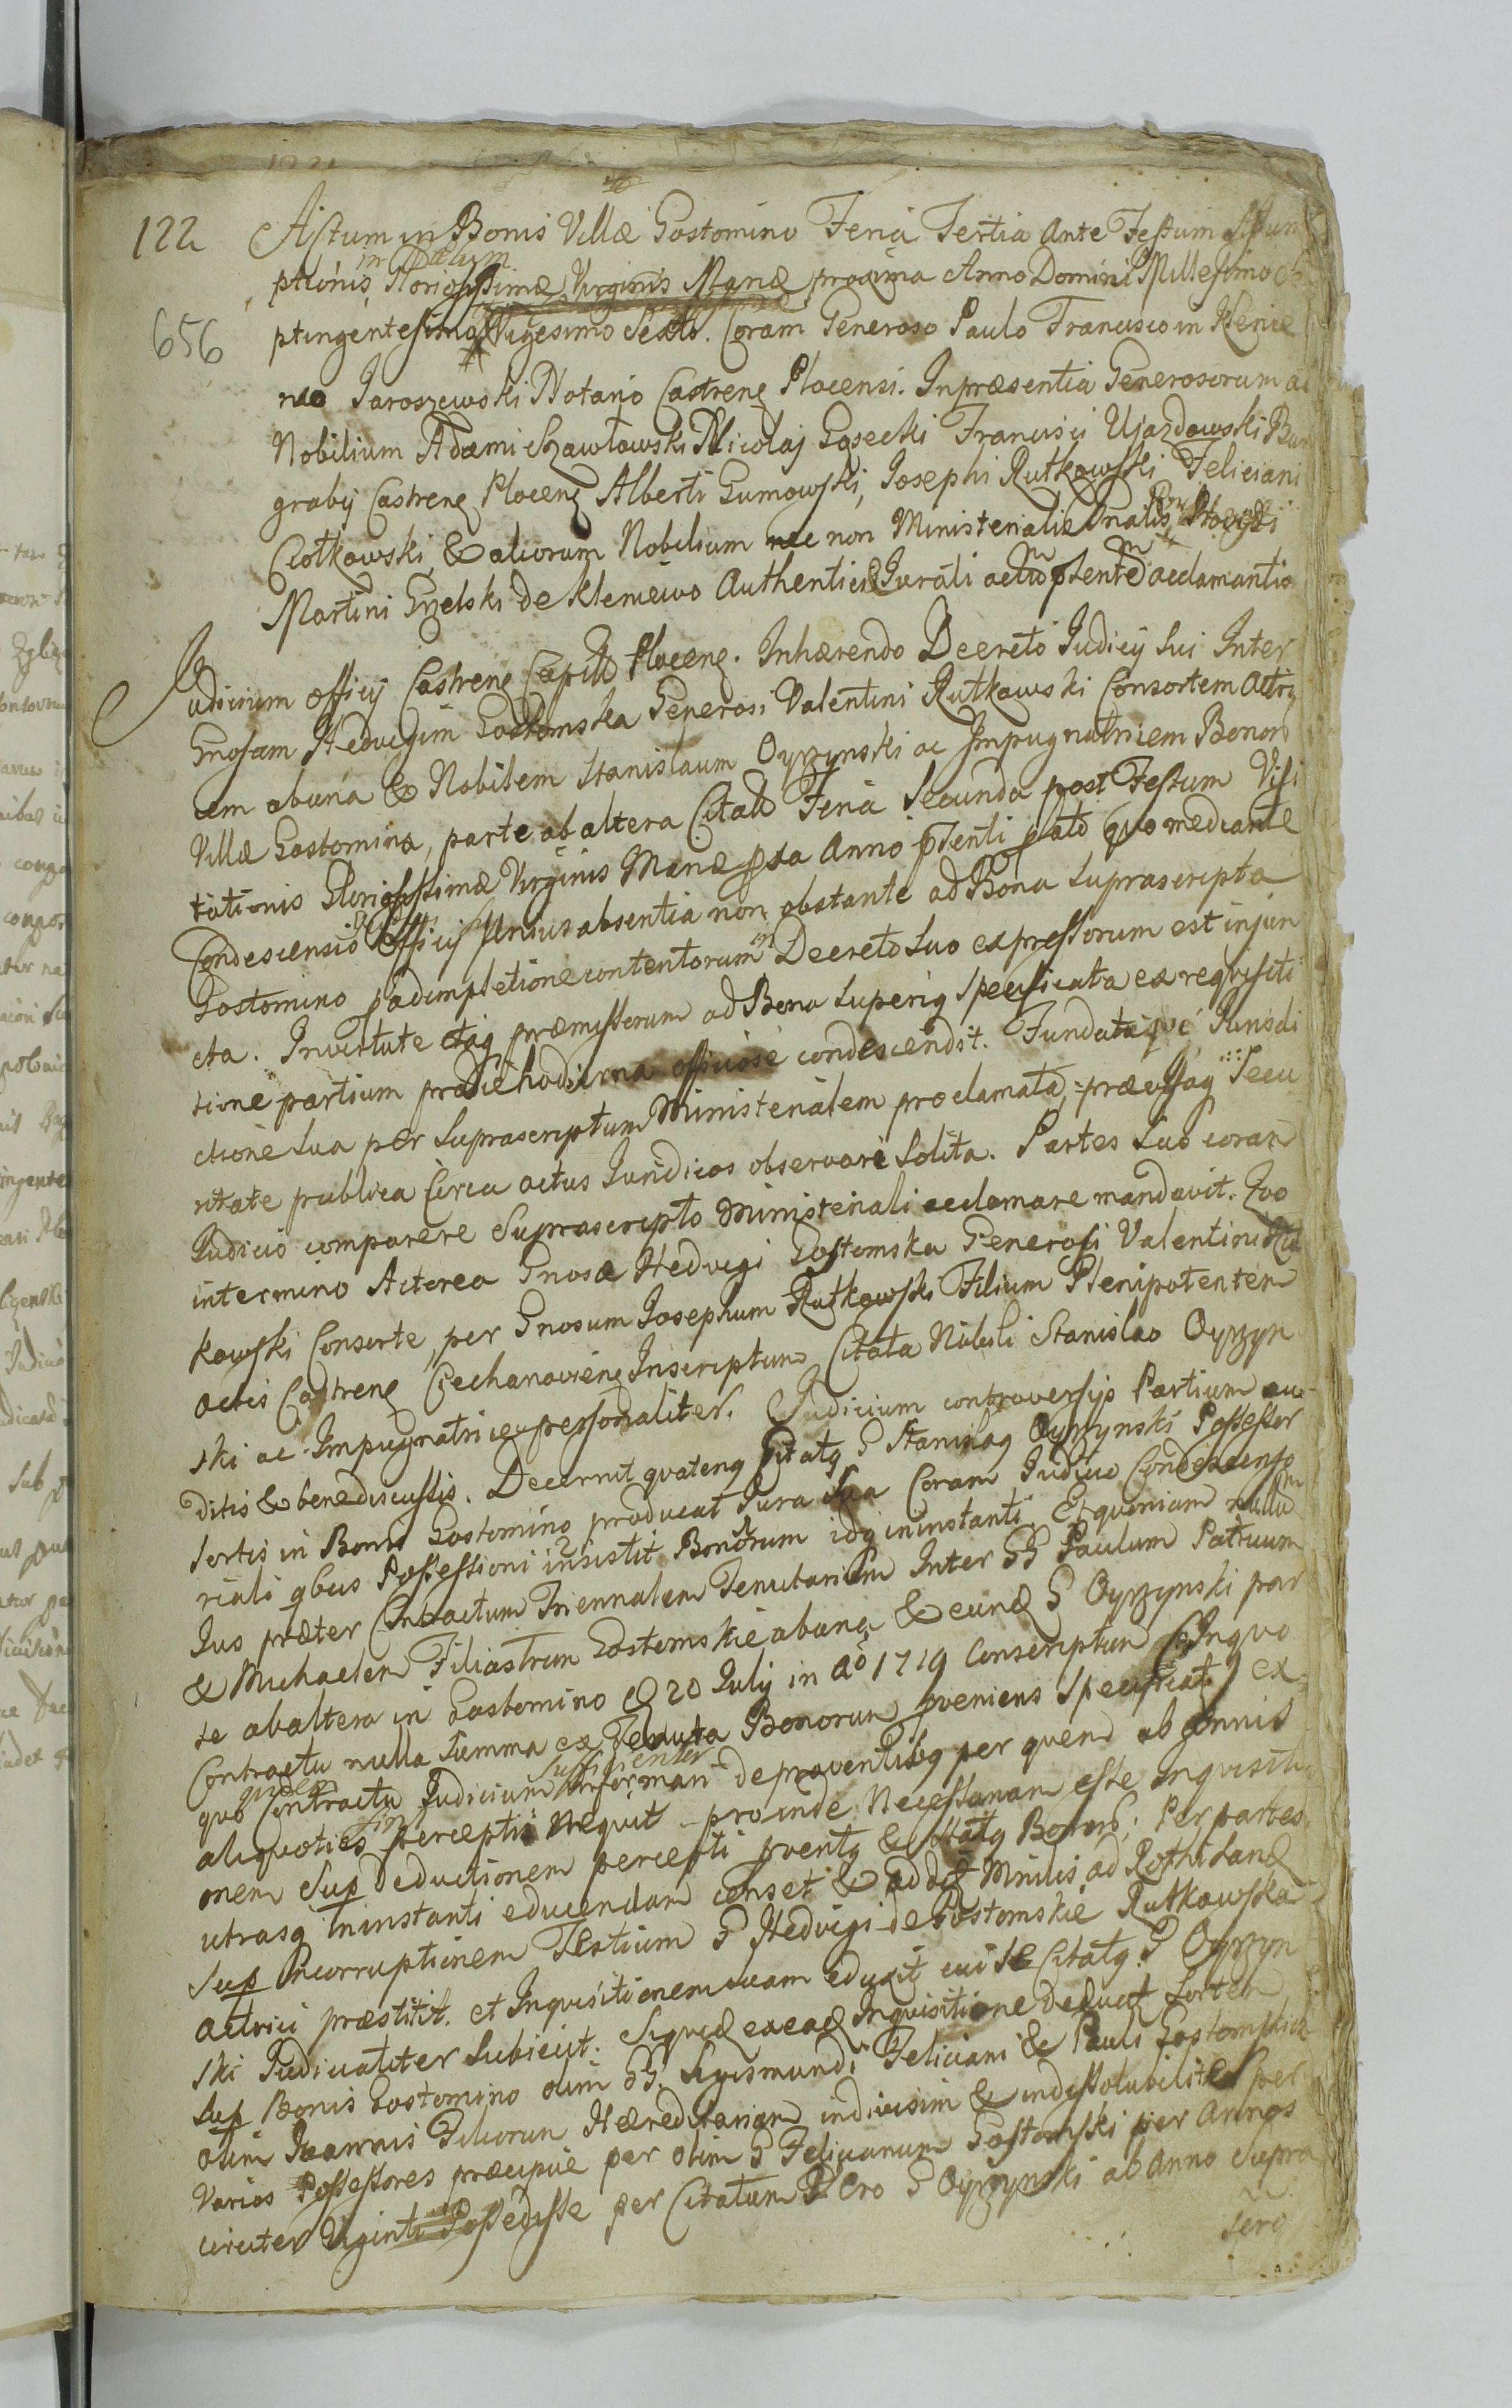 122 Actum in Bonis Villæ Gostomino Feria Tertia Ante Festum Assum
in Cælum
ptionis Gloriosissimæ Virginis Mariæ proxima Anno Domini Millesimo Se
656 ptingentesimo Vigesimo Sexto. Coram Generoso Paulo Francisco in Nenie
wo Jaroszewski Notario Castrenẽ Plocensi. In præsentia Generosorum ac
Nobilium Adami Szawłowski Nicolaj Gąsecki Francisci Ujazdowski Bur
graby Castrenẽ Plocenẽ Alberti Gumowski, Josephi Rutkowski Feliciani
Ciotkowski & aliorum Nobilium nec non Ministerialis Gnalis Providi
Martini Gzelski de Kleniewo Authentici & Jurati actum pñtem acclamantis
Judicium officij Castrenẽ Capitł Plocenẽ. Inhærendo Decreto Judicij sui Inter
Gnosam Hedvigim Gostomska Generosi Valentini Rutkowski Consortem actri
cem ab una & Nobilem Stanislaum Oyrzynski ac Impugnatricem Bonorũ
Villæ Gostomino, parte ab altera Citatũ Feria Secunda post Festum Visi
tationis Gloriosissimæ Virginis Mariæ pxa Anno pñti lato quo mediante
Condescensio Officij Unius absentia non obstante ad Bona suprascripta
Gostomino p adimpletione contentorum in Decreto suo expressorum est injun
cta. In virtute itaq præmissorum ad Bona superiq specificata ex requisiti
tione partium pro die hodierna officiose condescendit. Fundataque Jurisdi
ctione sua per suprascriptum Ministerialem proclamata, prævijsq Secu
ritate publica circa actus Juridicos observari solita. Partes suo coram
Judicio comparere suprascripto Ministeriali acclamare mandavit. Quo
in termino Actorea Gnosa Hedvigi Gostomska Generosi Valentini Rut
kowski Consorte, per Gnosum Josephum Rutkowski Filium Plenipotentem
actis Castrenẽ Ciechanovienẽ Inscriptum Citata Nobili Stanislao Oyrzyn
ski ac Impugnatrice personaliter. Judicium controversijs Partium au
ditis & bene discussis. Decernit quatenq Citatq G Stanislaq Oyrzynski Possessor
sortis in Bonis Gostomino producat Jura sua Coram Judicio Condescenso
riali qbus Possessioni insistit Bonorum idq in instanti. Et quoniam nullũ
Jus præter Contractum Triennalem Tenutariũm Inter GG Paulum Patruum
& Michaelem Filiastrum Gostomskie ab una & eundẽ G Oyrzynski par
te ab altera in Gostomino d 20 July in Aõ 1719 Conscriptum (In quo
Contractu nulla Summa ex Tenuta Bonorum pveniens specificatq) ex
quo Contractu Judicium sufficienter informari de proventibq per quem ab annis
aliquoties percepti nequit proinde Necessariam esse Inquisitio
onem Sup deductionem percepti pventq & statq Bonorũ. Per partes
utrasq in instanti educendam censet &
Sup incorruptionem Testium G Hedvigi de Gostomskie Rutkowska
actrici præstitit. et Inquisitionem suam eduxit cui se Citatq G Oyrzyn
ski Judicialiter subiecit. Siquidẽ ex eadẽ Inquisitione deducat sortem
Sup Bonis Gostomino olim GG. Sigismundi Feliciani & Pauli Gostomskich
olim Joannis Filiorum Hæreditariam indivisim & indissolubiliter per
Varios Possessores præcipue per olim G Felicianum Gostomski per Annos
circiter Viginti Possedisse per Citatum Vero G Oyrzynski ab Anno Supra